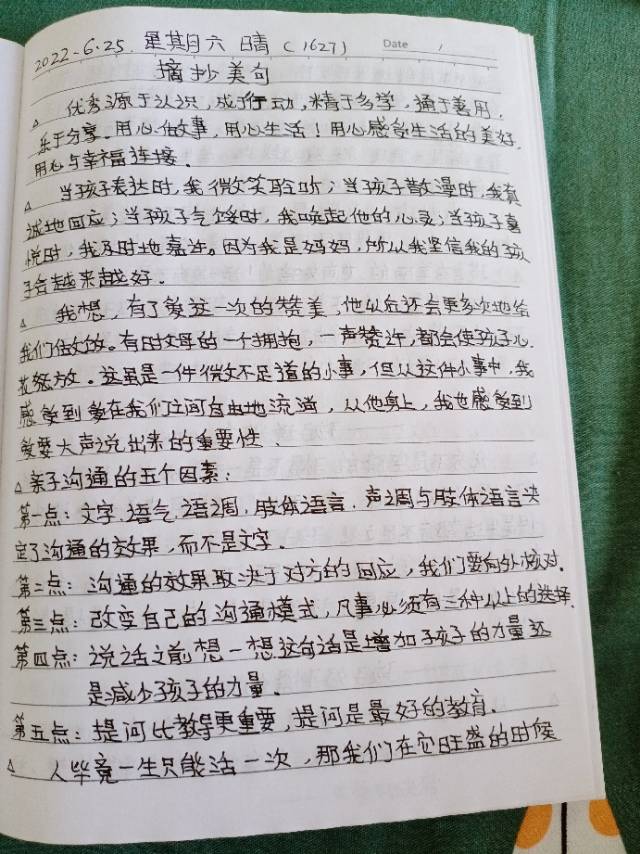 2022-6.25. 星期六 晴 (1627) Date /
摘抄美句
△ 优秀源于认识，成于行动，精于多学，通于善用，
乐于分享。用心做事，用心生活！用心感觉生活的美好，
用心与幸福连接。
△ 当孩子表达时，我微笑聆听；当孩子散漫时，我真
诚地回应；当孩子气馁时，我唤起他的心灵；当孩子喜
悦时，我及时地嘉许。因为我是妈妈，所以我坚信我的孩
子会越来越好。
△ 我想，有了爱这一次的赞美，他以后还会更多次地给
我们做饭。有时父母的一个拥抱，一声赞许，都会使孩子心
花怒放。这虽是一件微不足道的小事，但从这件小事中，我
感受到爱在我们之间自由地流淌，从他身上，我也感受到
爱要大声说出来的重要性。
△ 亲子沟通的五个因素：
第一点：文字、语气语调，肢体语言，声调与肢体语言决
定了沟通的效果，而不是文字。
第二点：沟通的效果取决于对方的回应，我们要向外核对。
第三点：改变自己的沟通模式，凡事必须有三种以上的选择。
第四点：说话之前想一想这句话是增加孩子的力量还
是减少孩子的力量。
第五点：提问比教导更重要，提问是最好的教育。
△ 人毕竟一生只能活一次，那我们在它旺盛的时候